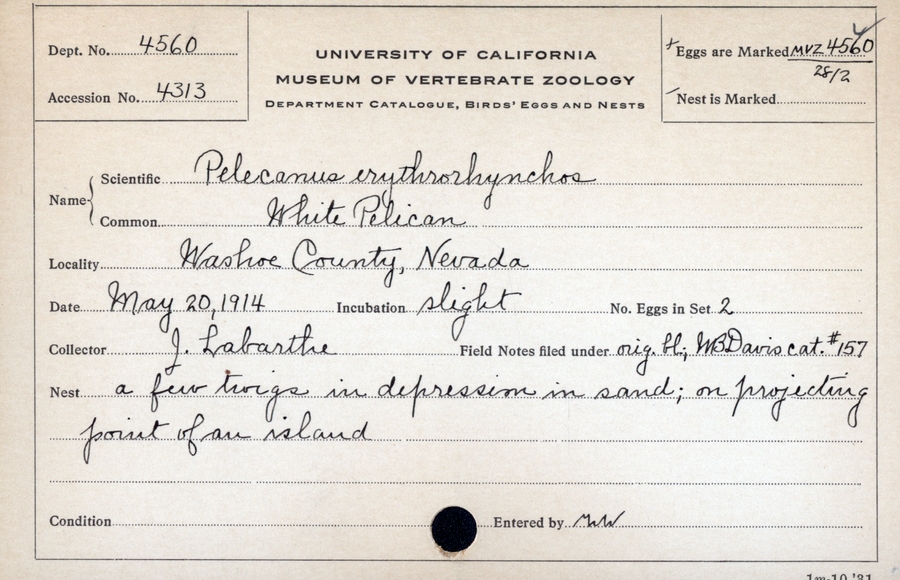 Dept. No. 4560
Accession No. 4313
UNIVERSITY OF CALIFORNIA
MUSEUM OF VERTEBRATE ZOOLOGY
DEPARTMENT CATALOGUE, BIRDS' EGGS AND NESTS
Eggs are Marked MVZ 4560
28/2
Nest is Marked
Name
Scientific Pelecanus erythrorhynchos
Common White Pelican
Locality Washoe County, Nevada
Date May 20, 1914 Incubation slight No. Eggs in Set 2
Collector J. Labarthe Field Notes filed under orig. bl; WBDavis cat. #157
Nest a few twigs in depression in sand; on projecting
point of an island
Condition Entered by
1m-10 '31